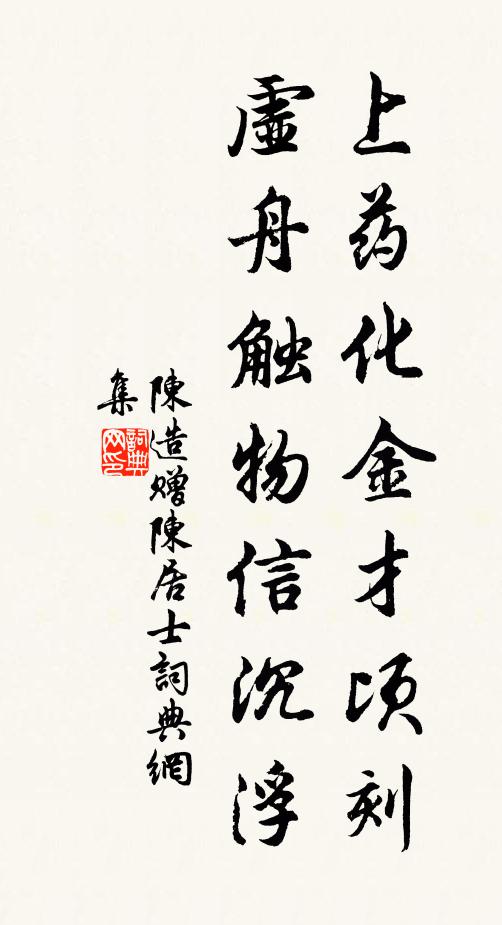 上药化金才頃刻
虚舟触物信沉浮
陳造贈陳居士詞典網
集
詞典网印